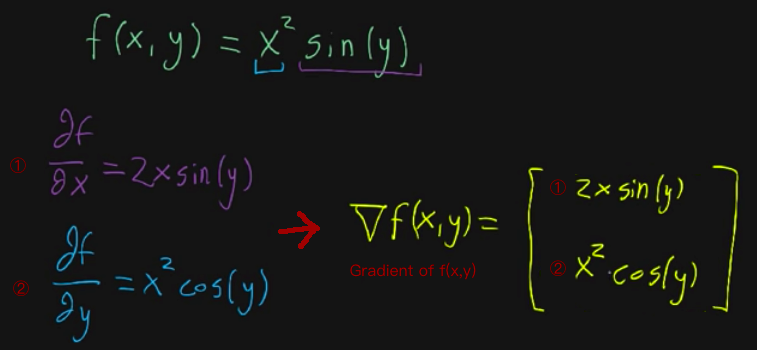 f(x,y) = x² sin(y)
① ∂f/∂x = 2x sin(y)
② ∂f/∂y = x² cos(y)
→ ∇f(x,y) = [① 2x sin(y)
② x²·cos(y)]
Gradient of f(x,y)